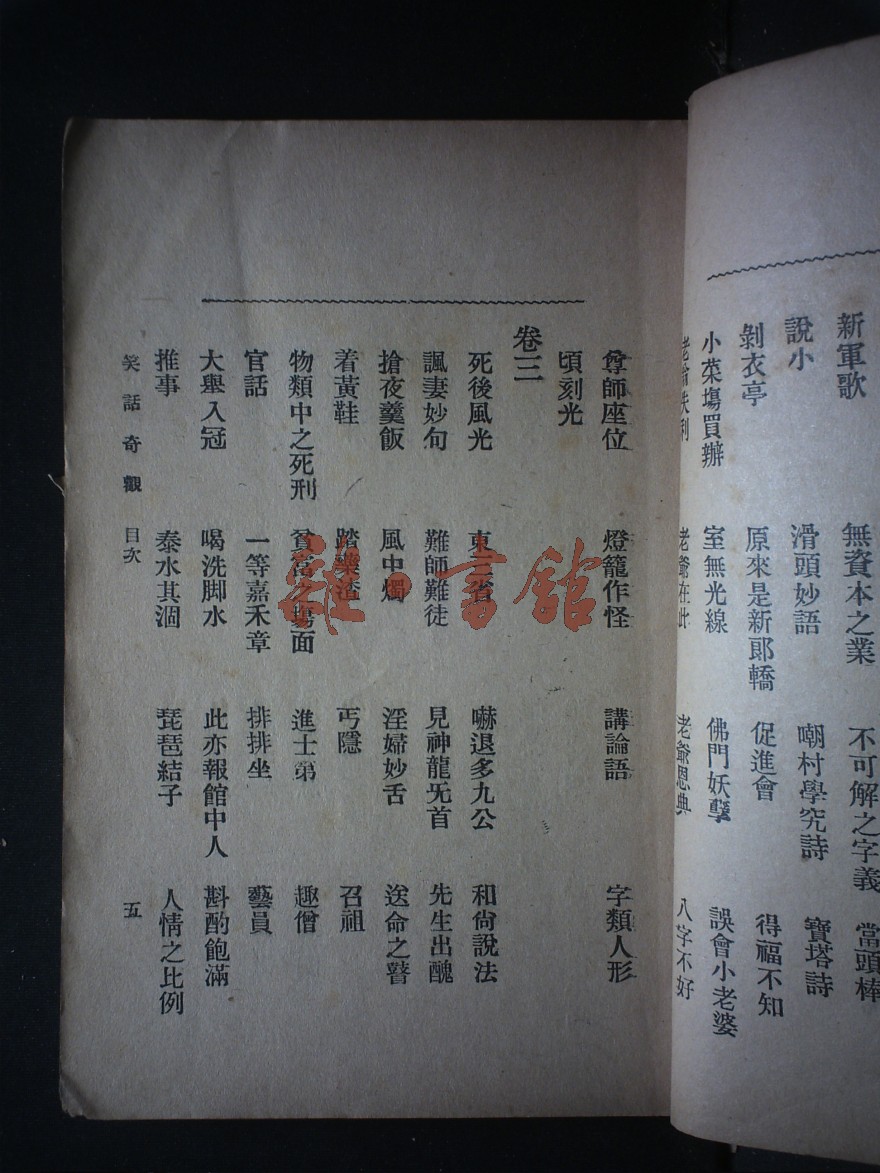 新軍歌　無資本之業　不可解之字義　當頭棒
說小　滑頭妙語　嘲村學究詩　寶塔詩
剝衣亭　原來是新郞轎　促進會　得福不知
小菜塲買辦　室無光線　佛門妖孽　誤會小老婆
老爺失利　老爺在此　老爺恩典　八字不好
尊師座位　燈籠作怪　講論語　字類人形
頃刻光
卷三
死後風光　東三省　嚇退多九公　和尙說法
諷妻妙句　難師難徒　見神龍旡首　先生出醜
搶夜羹飯　風中燭　淫婦妙舌　送命之瞽
着黃鞋　踏藥渣　丐隱　召祖
物類中之死刑　貧富之塲面　進士第　趣僧
官話　一等嘉禾章　排排坐　藝員
大舉入冠　喝洗脚水　此亦報館中人　斟酌飽滿
推事　泰水其涸　琵琶結子　人情之比例
笑話奇觀　目次　五